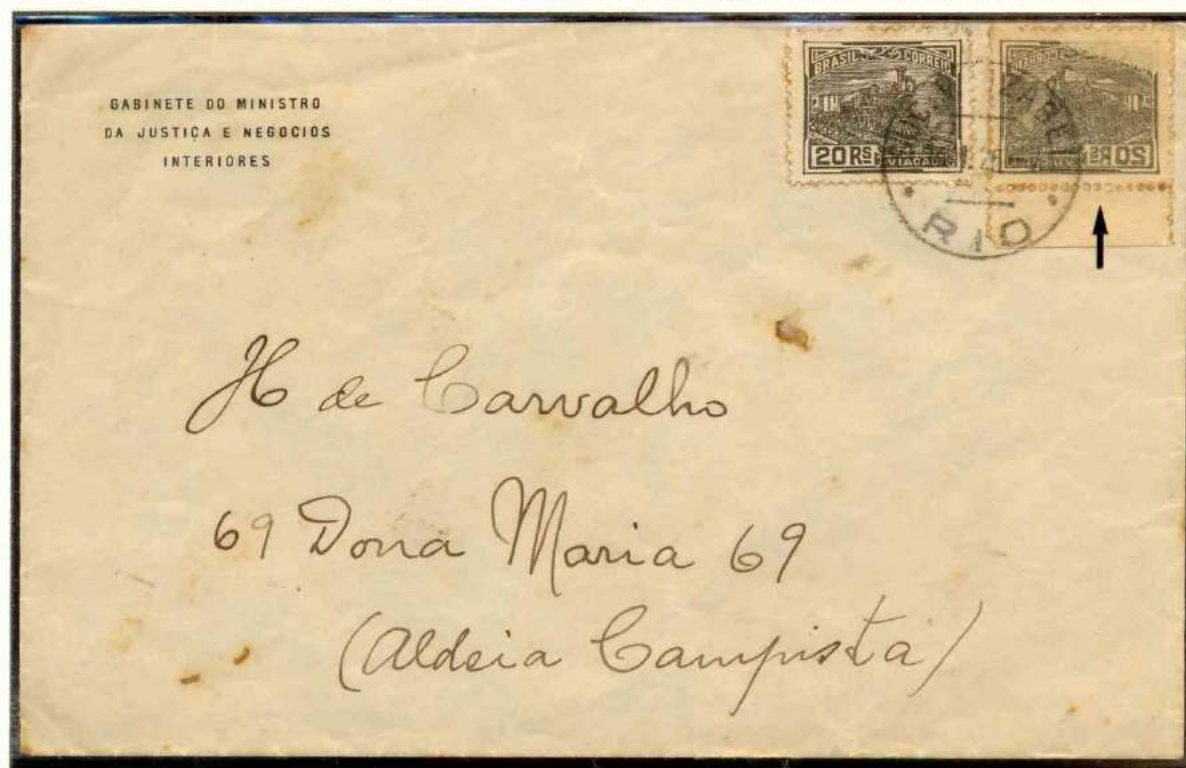 GABINETE DO MINISTRO
DA JUSTIÇA E NEGOCIOS
INTERIORES
BRASIL CORREIO
20 RS VIAÇAO
RIO
H de Carvalho
69 Dona Maria 69
(Aldeia Campista)